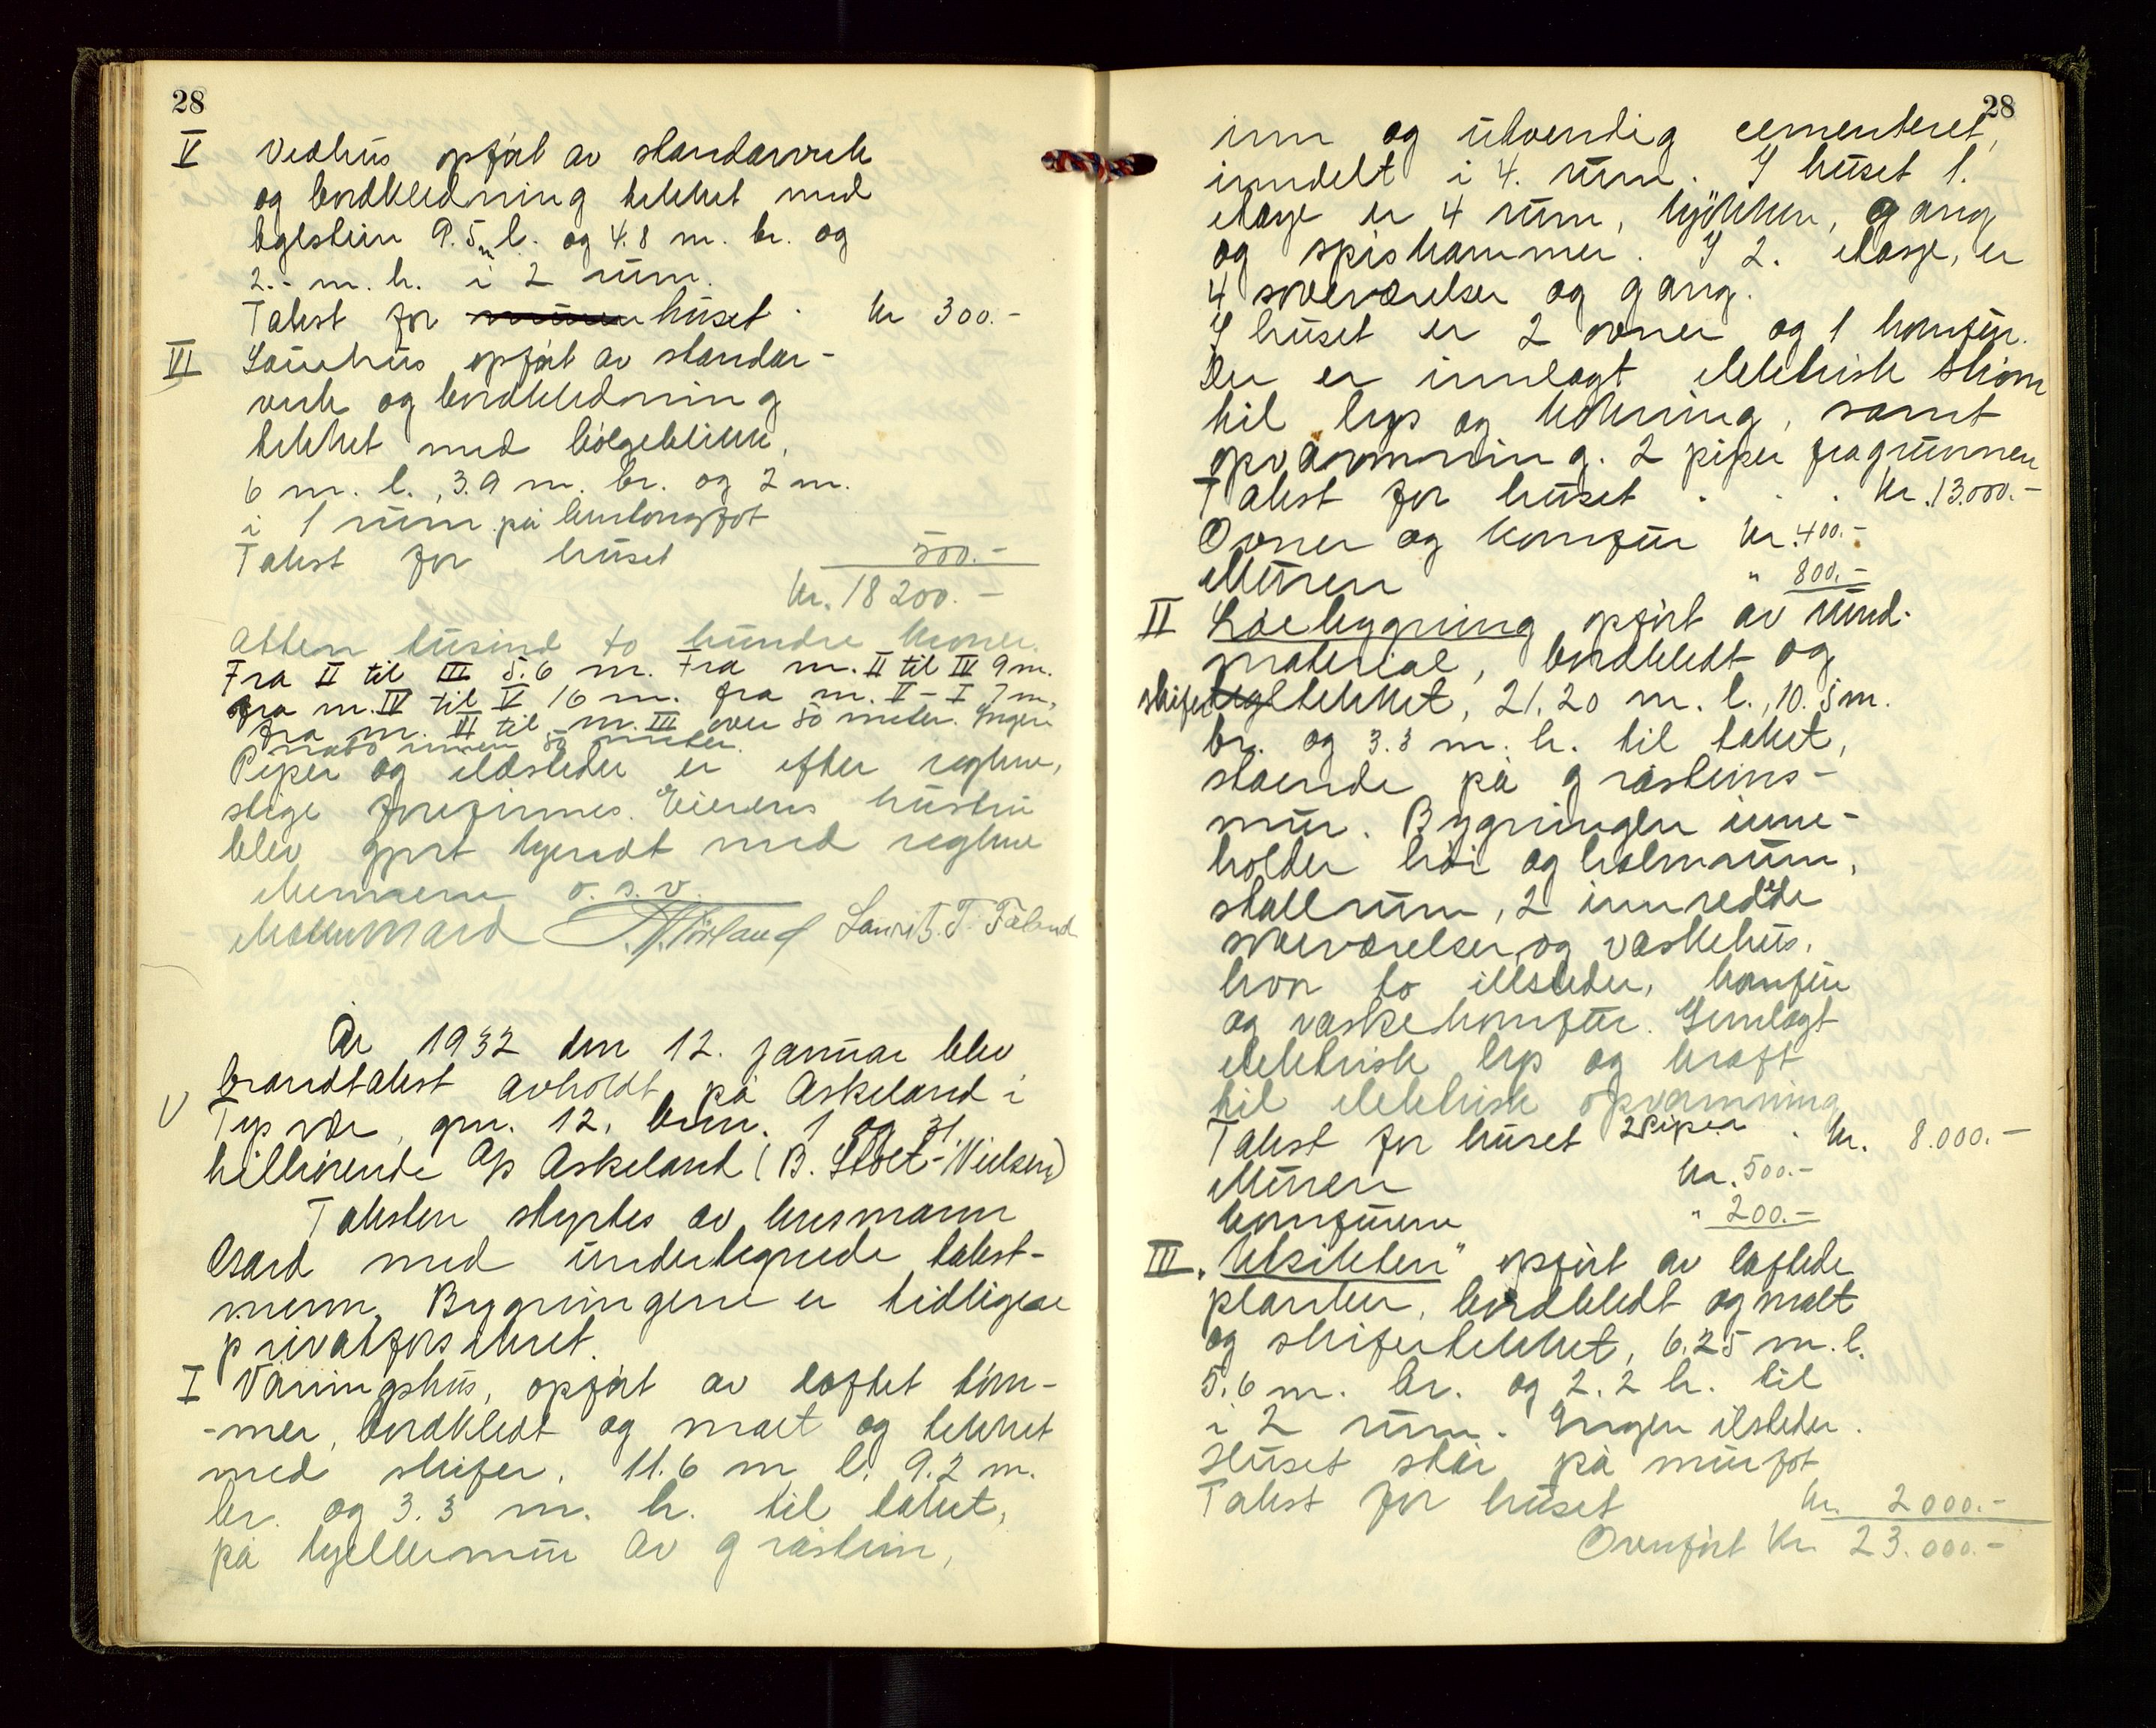 28
V Vedhus opført av standarverk
og bordkledning tekket med
teglstein 9.5 m l. og 4.8 m. br. og
2.- m. h. i 2 rum.
Takst for huset . kr 300.-
VI Sauehus opført av standar-
verk og bordkledning
tekket med bølgeblikk,
6 m. l., 3.9 m. br. og 2 m.
i 1 rum på betongfot
Takst for huset 500.-
kr. 18200.-
Atten tusind to hundre kroner.
Fra II til III 5.6 m. Fra nr. II til IV 9 m.
fra nr. IV til V 16 m. fra nr. V - I 7 m,
fra nr. II til nr. III over 50 meter. Ingen
nabo innen 50 meter.
Piper og ildsteder er efter reglene,
stige forefinnes. Eierens hustru
blev gjort kjendt med reglene
Mennene o.s.v.
Lauritz T. Føland
År 1932 den 12. januar blev
brandtakst avholdt på Askeland i
V Tysvær, gnr. 12, bnr. 1 og 31.
tilhørende A/s Askeland (B. Stolt-Nielsen)
Taksten styrtes av lensmann
Aasrd med undertegnede takst-
menn. Bygningene er tidligere
privatforsikret.
I Våningshus, opført av laftet tøm-
-mer, bordkledt og malt og tekket
med skifer, 11.6 m l. 9.2 m.
br. og 3.3 m. h. til taket,
på kjellermur av gråstein,
28
inn og utvendig cementeret,
inndelt i 4. rum. I huset 1.
etage er 4 rum, kjøkken, gang
og spiskammer. I 2. etasje, er
4 soveværelser og gang.
I huset er 2 ovner og 1 komfyr.
Der er innlagt elektrisk strøm
til lys og kokning, samt
opvarmning. 2 piper fra grunnen
Takst for huset . . . kr. 13.000.-
Ovner og komfur kr. 400.-
Muren " 800.-
II Løebygning opført av rund-
material, bordkledt og
skifertekket, 21.20 m. l., 10.5 m.
br. og 3.3 m. h. til taket,
stående på gråsteins-
mur. Bygningen inne-
holder høi og halmrum,
stallrum, 2 innredede
soveværelser og vaskehus,
hvor to illsteder, komfur
og vaskekomfur. Innlagt
elektrisk lys og kraft
til elektrisk opvarmning
Takst for huset 2 Piper . kr. 8.000.-
Muren kr. 500.-
komfurene " 200.-
III "Utsikten" opført av laftede
planker, bordkledt og malt
og skifertekket, 6.25 m. l.
5.6 m. br. og 2.2 h. til
i 2 rum. Ingen ilsteder.
Huset står på murfot
Takst for huset kr. 2000.-
Overført kr. 23.000.-